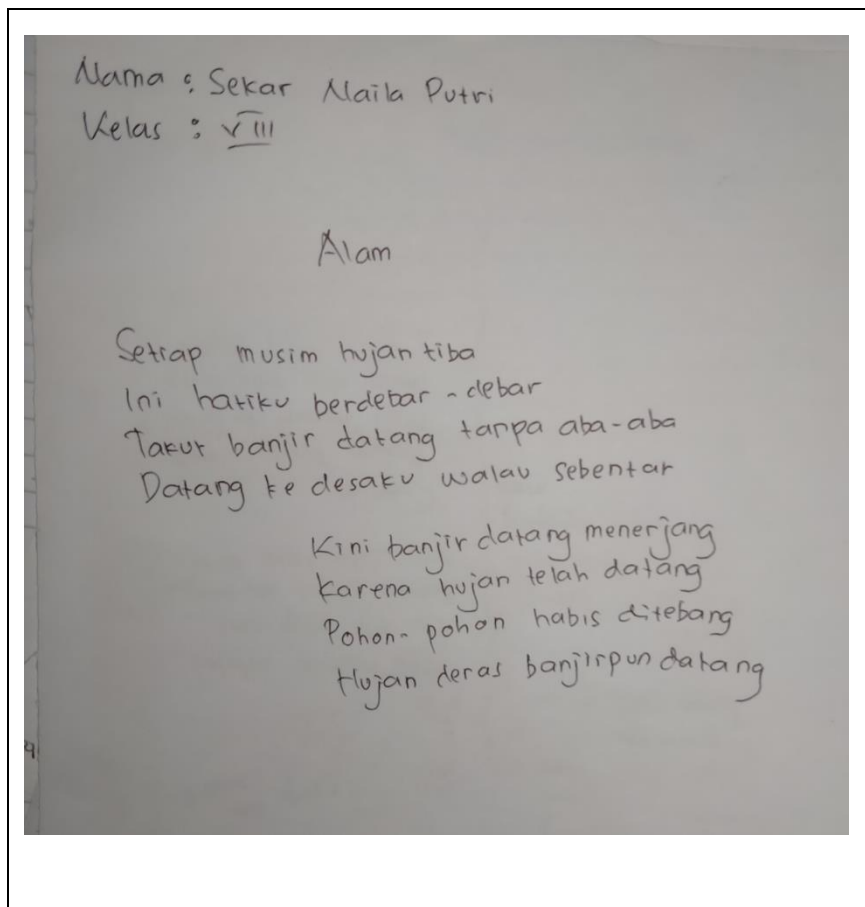 Nama : Sekar Naila Putri
Kelas : VIII
Alam
Setiap musim hujan tiba
Ini hatiku berdebar-debar
Takut banjir datang tanpa aba-aba
Datang ke desaku walau sebentar
Kini banjir datang menerjang
Karena hujan telah datang
Pohon-pohon habis ditebang
Hujan deras banjirpun datang